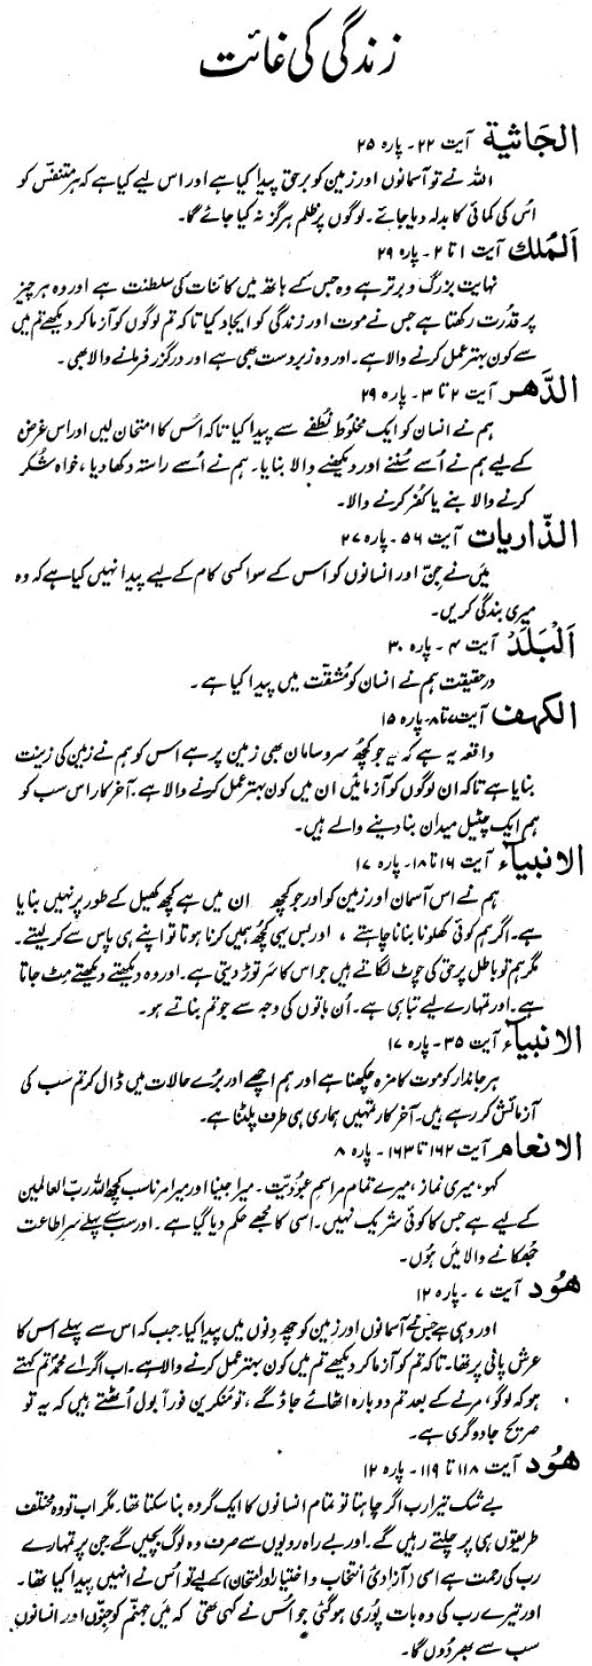 زندگی کی غائت
الجَاثیۃ آیت ۲۲۔ پارہ ۲۵
اللہ نے تو آسمانوں اور زمین کو برحق پیدا کیا ہے اور اس لیے کیا ہے کہ ہر متنفّس کو
اُس کی کمائی کا بدلہ دیا جائے۔ لوگوں پر ظلم ہرگز نہ کیا جائے گا۔
اَلمُلک آیت ۱ تا ۲ ۔ پارہ ۲۹
نہایت بزرگ و برتر ہے وہ جس کے ہاتھ میں کائنات کی سلطنت ہے اور وہ ہر چیز
پر قدُرت رکھتا ہے جس نے موت اور زندگی کو ایجاد کیا تاکہ تم لوگوں کو آزما کر دیکھے تم میں
سے کون بہتر عمل کرنے والا ہے۔ اور وہ زبردست بھی ہے اور درگزر فرمانے والا بھی۔
الدَّھر آیت ۲ تا ۳ ۔ پارہ ۲۹
ہم نے انسان کو ایک مخلوُط نُطفے سے پیدا کیا تاکہ اس کا امتحان لیں اور اس غرض
کے لیے ہم نے اُسے سُننے اور دیکھنے والا بنایا۔ ہم نے اُسے راستہ دکھا دیا ، خواہ شُکر
کرنے والا بنے یا کفُر کرنے والا۔
الذّاریات آیت ۵۶ ۔ پارہ ۲۷
میَں نے جِنّ اور انسانوں کو اس کے سوا کسی کام کے لیے پیدا نہیں کیا ہے کہ وہ
میری بندگی کریں۔
اَلْبَلَدْ آیت ۴ ۔ پارہ ۳۰
درحقیقت ہم نے انسان کو مُشقّت میں پیدا کیا ہے ۔
الکہف آیت ۷ تا ۸۔ پارہ ۱۵
واقعہ یہ ہے کہ یہ جو کچھُ سروسامان بھی زمین پر ہے اس کو ہم نے زمین کی زینت
بنایا ہے تاکہ ان لوگوں کو آزمائیں ان میں کون بہتر عمل کرنے والا ہے۔ آخر کار اس سب کو
ہم ایک چٹیل میدان بنا دینے والے ہیں۔
الانبیاء آیت ۱۶ تا ۱۸۔ پارہ ۱۷
ہم نے اس آسمان اور زمین کو اور جو کچھ ان میں ہے کچھ کھیل کے طور پر نہیں بنایا
ہے۔ اگر ہم کوئی کھلونا بنانا چاہتے ، اور بس یہی کچھُ ہمیں کرنا ہوتا تو اپنے ہی پاس سے کر لیتے۔
مگر ہم تو باطل پر حق کی چوٹ لگاتے ہیں جو اس کا سر توڑ دیتی ہے۔ اور وہ دیکھتے دیکھتے مِٹ جاتا
ہے۔ اور تمہارے لیے تباہی ہے۔ اُن باتوں کی وجہ سے جو تم بناتے ہو۔
الانبیاء آیت ۳۵ ۔ پارہ ۱۷
ہر جاندار کو موت کا مزہ چکھنا ہے اور ہم اچھے اور برُے حالات میں ڈال کر تم سب کی
آزمائش کر رہے ہیں۔ آخر کار تمہیں ہماری ہی طرف پلٹنا ہے۔
الانعام آیت ۱۶۲ تا ۱۶۳ ۔ پارہ ۸
کہو، میری نماز ، میرے تمام مراسمِ عبوُدیّت ۔ میرا جینا اور میرا مرنا سب کچھُ اللہ ربّ العالمین
کے لیے ہے جس کا کوئی شریک نہیں۔ اسی کا مجھے حکم دیا گیا ہے ۔ اور سب سے پہلے سرِ اطاعت
جھُکانے والا میَں ہوُں۔
ھُود آیت ۷ ۔ پارہ ۱۲
اور وہی ہے جس نے آسمانوں اور زمین کو چھ دِنوں میں پیدا کیا۔ جب کہ اس سے پہلے اس کا
عرش پانی پر تھا۔ تاکہ تم کو آزما کر دیکھے تم میں کون بہتر عمل کرنے والا ہے۔ اب اگر اے محمدؐ تم کہتے
ہو کہ لوگو، مرنے کے بعد تم دوبارہ اٹھائے جاؤ گے ، تو مُنکرین فوراً بول اُٹھتے ہیں کہ یہ تو
صریح جادوگری ہے۔
ھُود آیت ۱۱۸ تا ۱۱۹ ۔ پارہ ۱۲
بے شک تیرا رب اگر چاہتا تو تمام انسانوں کا ایک گروہ بنا سکتا تھا۔ مگر اب تو وہ مختلف
طریقوں ہی پر چلتے رہیں گے۔ اور بے راہ رویوں سے صرف وہ لوگ بچیں گے جن پر تمہارے
رب کی رحمت ہے اسی (آزادئ انتخاب و اختیار اور امتحان) کے لیے تو اُس نے انہیں پیدا کیا تھا ۔
اور تیرے رب کی وہ بات پوُری ہو گئی جو اُس نے کہی تھی کہ میَں جہنّم کو جنّوں اور انسانوں
سب سے بھر دوُں گا۔